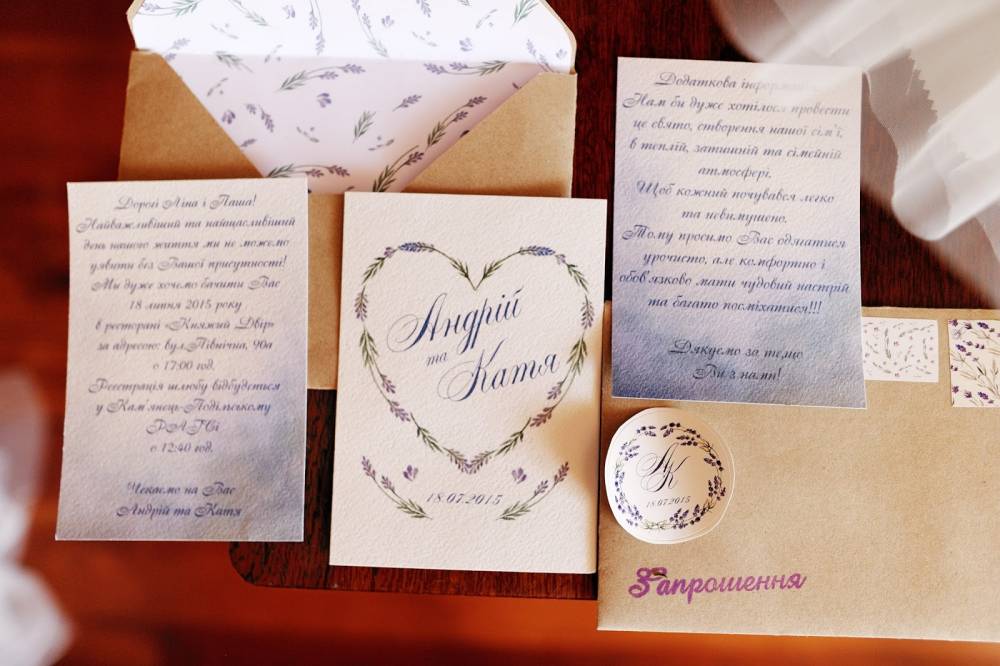 Дорогі Ліна і Паша!
Найважливіший та найщасливіший
день нашого життя ми не можемо
уявити без Вашої присутності!
Ми дуже хочемо бачити Вас
18 липня 2015 року
в ресторані «Княжий Двір»
за адресою: вул.Північна, 90а
о 17:00 год.
Реєстрація шлюбу відбудеться
у Кам'янець-Подільському
РАГСі
о 12:40 год.
Чекаємо на Вас
Андрій та Катя
Андрій
та
Катя
18.07.2015
Додаткова
Нам би дуже хотілося провести
це свято, створення нашої сім'ї,
в теплій, затишній та сімейній
атмосфері.
Щоб кожний почувався легко
та невимушено.
Тому просимо Вас одягатися
урочисто, але комфортно і
обов'язково мати чудовий настрій
та багато посміхатися!!!
Дякуємо за те,що
Ви з нами!
АК
18.07.2015
Запрошення